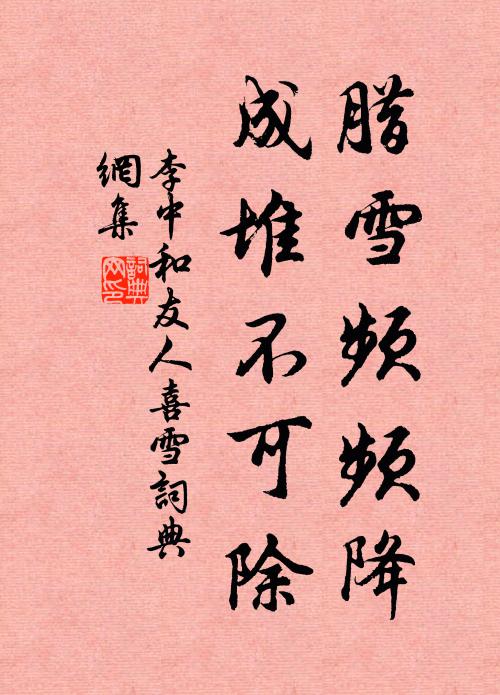 腊雪频频降
成堆不可除
李中和友人喜雪詞典
網集
詞典
网印